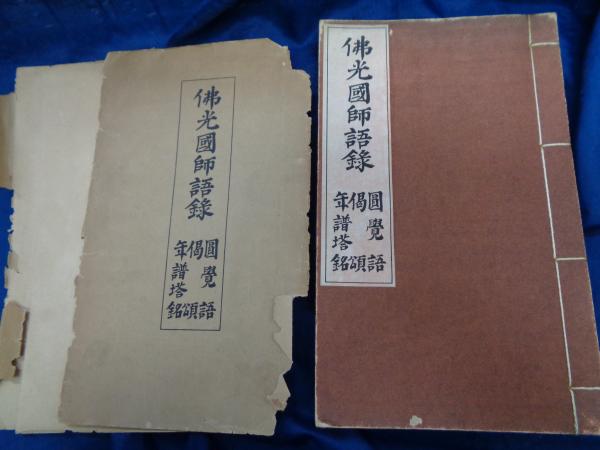 佛光國師語錄
圓覺語
偈頌
年譜塔銘
佛光國師語錄
圓覺語
偈頌
年譜塔銘